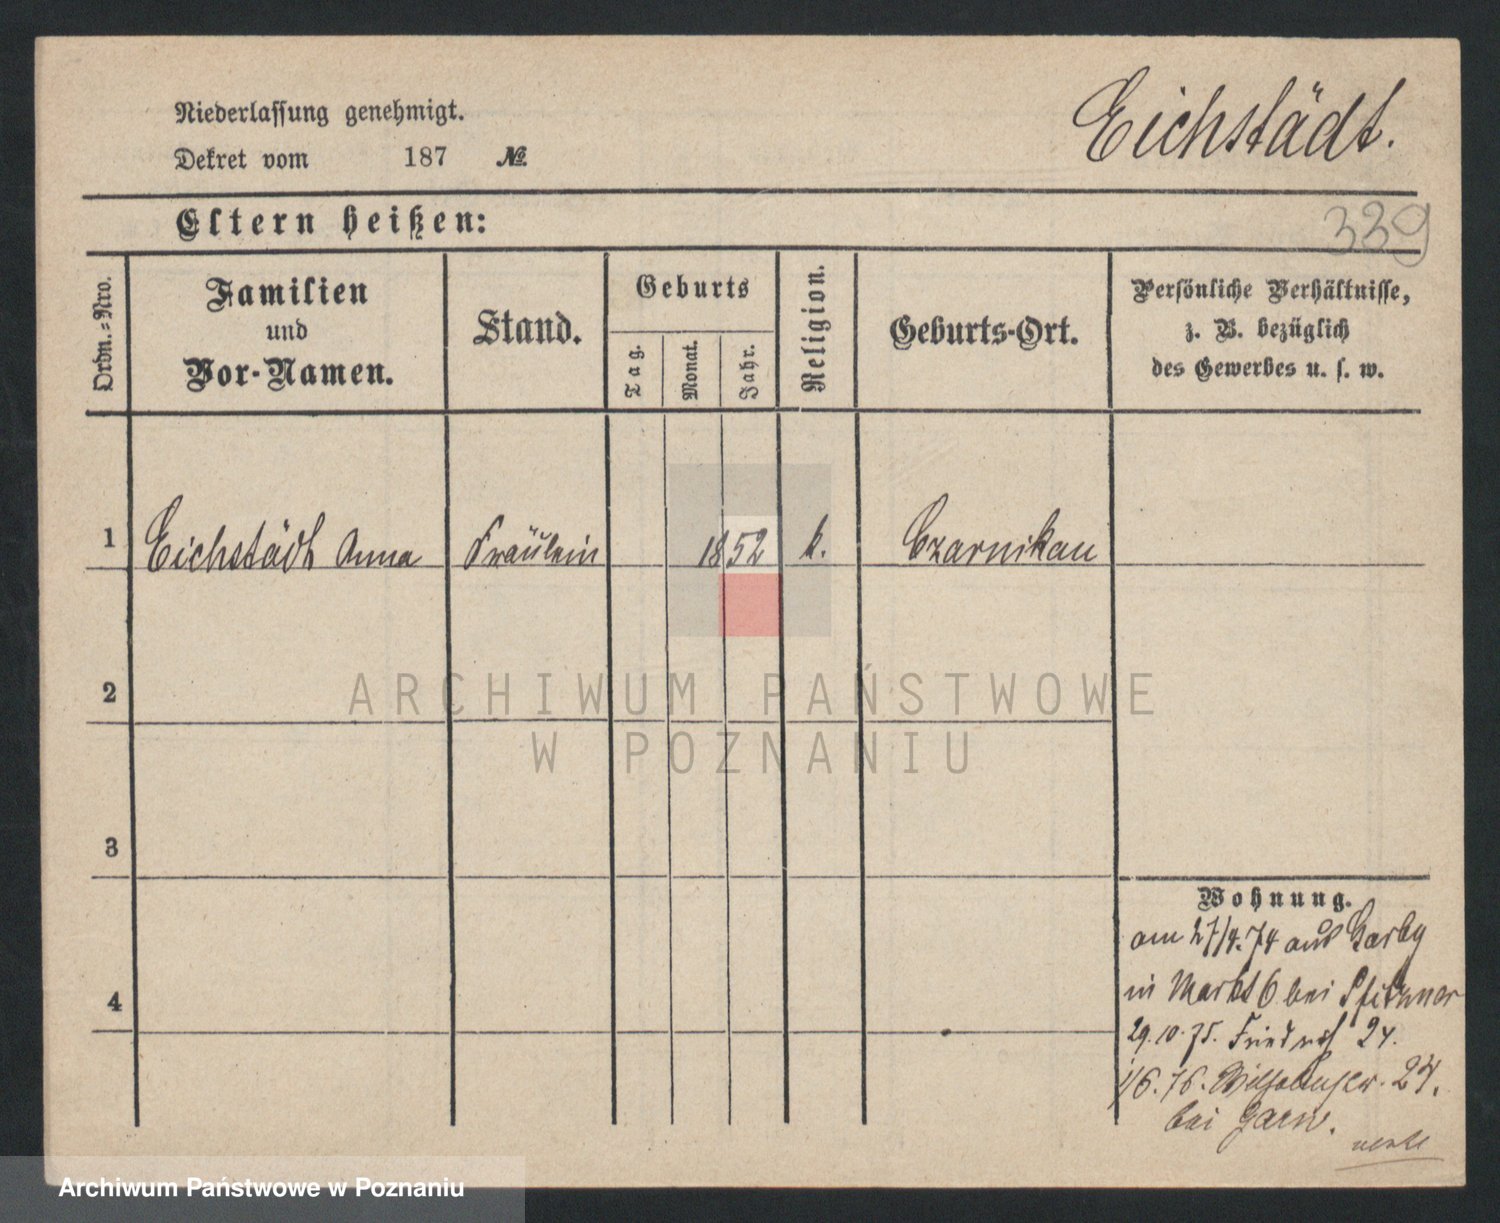 Niederlassung genehmigt.
Dekret vom 187 №
Eichstädt.
Eltern heißen:
339
Ordn.=Nro.
Familien
und
Vor-Namen.
Stand.
Geburts
Tag.
Monat.
Jahr.
Religion.
Geburts-Ort.
Persönliche Verhältnisse,
z. B. bezüglich
des Gewerbes u. s. w.
1 Eichstädt Anna Fräulein 1852 k. Czarnikau
2
3
4
Wohnung.
am 27/4.74 aus
in Markt 6 bei
29.10.75. 24.
1/6.76. 24.
bei
ARCHIWUM PAŃSTWOWE
W POZNANIU
Archiwum Państwowe w Poznaniu